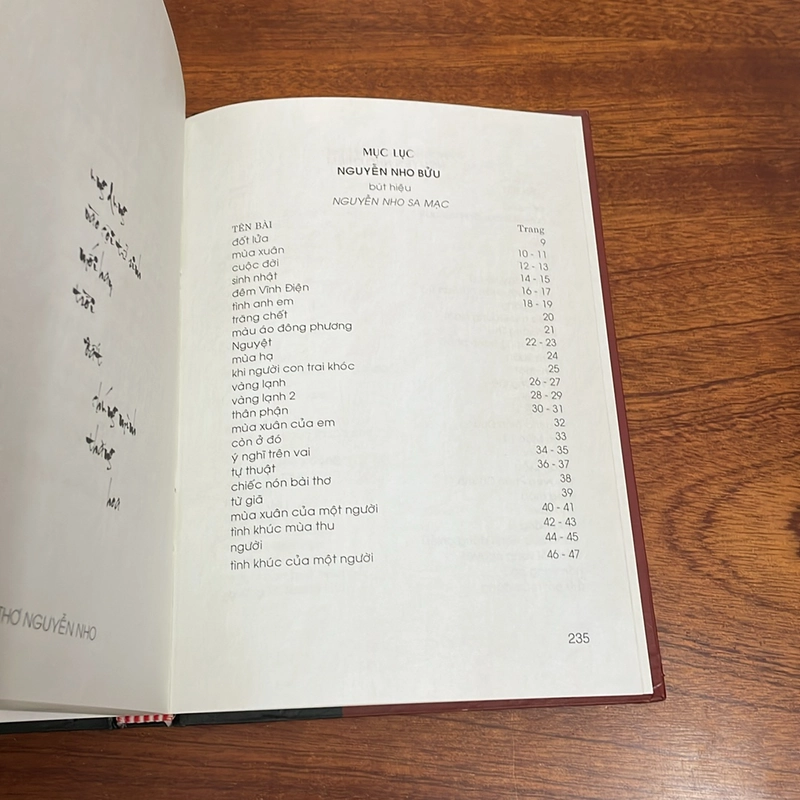 THƠ NGUYỄN NHO
MỤC LỤC
NGUYỄN NHO BỬU
bút hiệu
NGUYỄN NHO SA MẠC
TÊN BÀI Trang
đốt lửa 9
mùa xuân 10 - 11
cuộc đời 12 - 13
sinh nhật 14 - 15
đêm Vĩnh Điện 16 - 17
tình anh em 18 - 19
trăng chết 20
màu áo đông phương 21
Nguyệt 22 - 23
mùa hạ 24
khi người con trai khóc 25
vàng lạnh 26 - 27
vàng lạnh 2 28 - 29
thân phận 30 - 31
mùa xuân của em 32
còn ở đó 33
ý nghĩ trên vai 34 - 35
tự thuật 36 - 37
chiếc nón bài thơ 38
từ giã 39
mùa xuân của một người 40 - 41
tình khúc mùa thu 42 - 43
người 44 - 45
tình khúc của một người 46 - 47
235